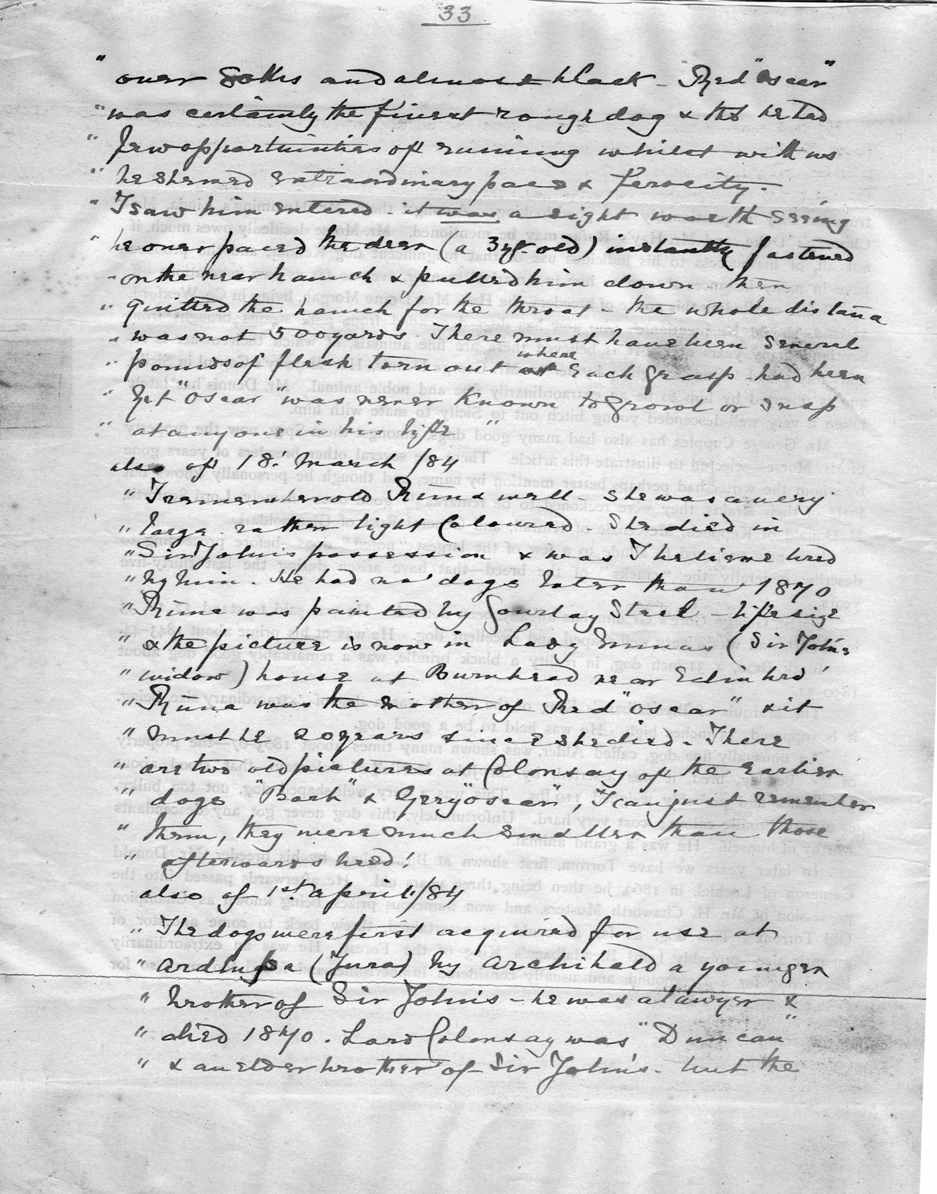 33
" over 80 lbs and almost black - Red "Oscar"
" was certainly the finest rough dog & tho he had
" few opportunities of running whilst with us
" he shewed extraordinary pace & ferocity. -
" I saw him entered. it was a sight worth seeing
" he over paced the deer (a 3yr old) instantly fastened
" on the near haunch & pulled him down then
" quitted the haunch for the throat - the whole distance
" was not 500 yards. There must have been several
" pounds of flesh torn out where each grasp had been
" Yet "Oscar" was never known to growl or snap
" at anyone in his life "
also of 18. March /84
" I remember old Runa well - She was a very
" large rather light Coloured. She died in
" Sir John's possession & was I believe bred
" by him. He had no dogs later than 1870
" Runa was painted by Gourlay Steel - life size
" & the picture is now in Lady (Sir John's
" widow) house at Burnhead near Edinbro'
" Runa was the mother of Red "Oscar" & it
" must be 20 years since she died. There
" are two old pictures at Colonsay of the earlier
" dogs "Bach" & Grey "Oscar", I can just remember
" them, they were much smaller than those
" afterwards bred!
also of 1st April /84
" The dogs were first acquired for use at
" Ardlussa (Jura) by Archibald a younger
" brother of Sir John's - he was a lawyer &
" died 1870. Lord Colonsay was "Duncan"
" & an elder brother of Sir John's - but the